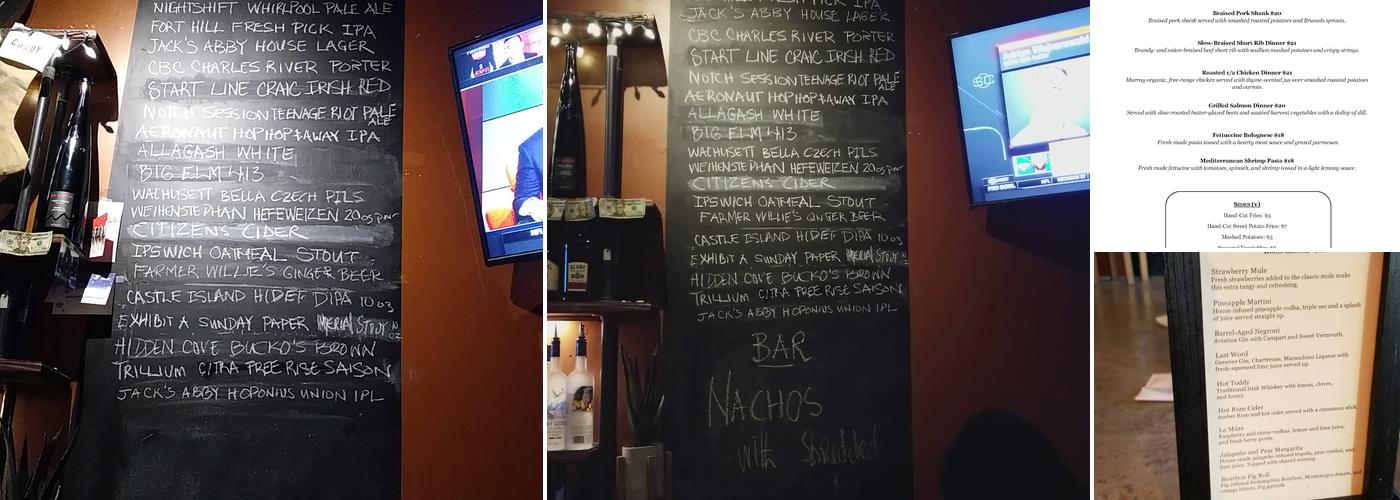 NIGHTSHIFT WHIRLPOOL PALE ALE
FORT HILL FRESH PICK IPA
JACK'S ABBY HOUSE LAGER
CBC CHARLES RIVER PORTER
START LINE CRAIC IRISH RED
NOTCH SESSION TEENAGE RIOT PALE
ALE
AERONAUT HOP HOP & AWAY IPA
ALLAGASH WHITE
BIG ELM 413
WACHUSETT BELLA CZECH PILS
WEIHENSTEPHAN HEFEWEIZEN 20oz
CITIZENS CIDER
IPSWICH OATMEAL STOUT
FARMER WILLIE'S GINGER BEER
CASTLE ISLAND HIDEF DIPA 10 oz
EXHIBIT A SUNDAY PAPER IMPERIAL STOUT
OZ
HIDDEN COVE BUCKO'S BROWN
TRILLIUM CITRA FREE RISE SAISON
JACK'S ABBY HOPONIUS UNION IPL
CANDY
JACK'S ABBY HOUSE LAGER
CBC CHARLES RIVER PORTER
START LINE CRAIC IRISH RED
NOTCH SESSION TEENAGE RIOT PALE
ALE
AERONAUT HOP HOP & AWAY IPA
ALLAGASH WHITE
BIG ELM 413
WACHUSETT BELLA CZECH PILS
WEIHENSTEPHAN HEFEWEIZEN 20oz
CITIZENS CIDER
IPSWICH OATMEAL STOUT
FARMER WILLIE'S GINGER BEER
CASTLE ISLAND HIDEF DIPA 10 oz
EXHIBIT A SUNDAY PAPER IMPERIAL STOUT
OZ
HIDDEN COVE BUCKO'S BROWN
TRILLIUM CITRA FREE RISE SAISON
JACK'S ABBY HOPONIUS UNION IPL
BAR
NACHOS
with Shredded
PRO BOWL
NFL
Braised Pork Shank $20
Braised pork shank served with smashed roasted potatoes and Brussels sprouts.
Slow-Braised Short Rib Dinner $21
Brandy- and onion-braised beef short rib with scallion mashed potatoes and crispy strings.
Roasted 1/2 Chicken Dinner $21
Murray organic, free-range chicken served with thyme-scented jus over smashed roasted potatoes
and carrots.
Grilled Salmon Dinner $20
Served with slow-roasted butter-glazed beets and sautéed harvest vegetables with a dollop of dill.
Fettuccine Bolognese $18
Fresh-made pasta tossed with a hearty meat sauce and grated parmesan.
Mediterranean Shrimp Pasta $18
Fresh made fettucine with tomatoes, spinach, and shrimp tossed in a light lemony sauce.
SIDES (V)
Hand-Cut Fries: $5
Hand-Cut Sweet Potato Fries: $7
Mashed Potatoes: $5
Strawberry Mule
Fresh strawberries added to the classic mule make
this extra tangy and refreshing.
Pineapple Martini
House-infused pineapple vodka, triple sec and a splash
of juice served straight up.
Barrel-Aged Negroni
Aviation Gin with Campari and Sweet Vermouth.
Last Word
Genever Gin, Chartreuse, Maraschino Liqueur with
fresh-squeezed lime juice served up.
Hot Toddy
Traditional Irish Whiskey with lemon, cloves,
and honey.
Hot Rum Cider
Amber Rum and hot cider served with a cinnamon stick.
La Mûre
Raspberry and citrus vodkas, lemon and lime juice,
and fresh berry purée.
Jalapeño and Pear Margarita
House-made jalapeño-infused tequila, pear cordial, and
lime juice. Topped with shaved nutmeg.
Bourbon Fig Roll
Fig-infused Redemption Bourbon, Montenegro Amaro, and
orange bitters. Fig garnish.